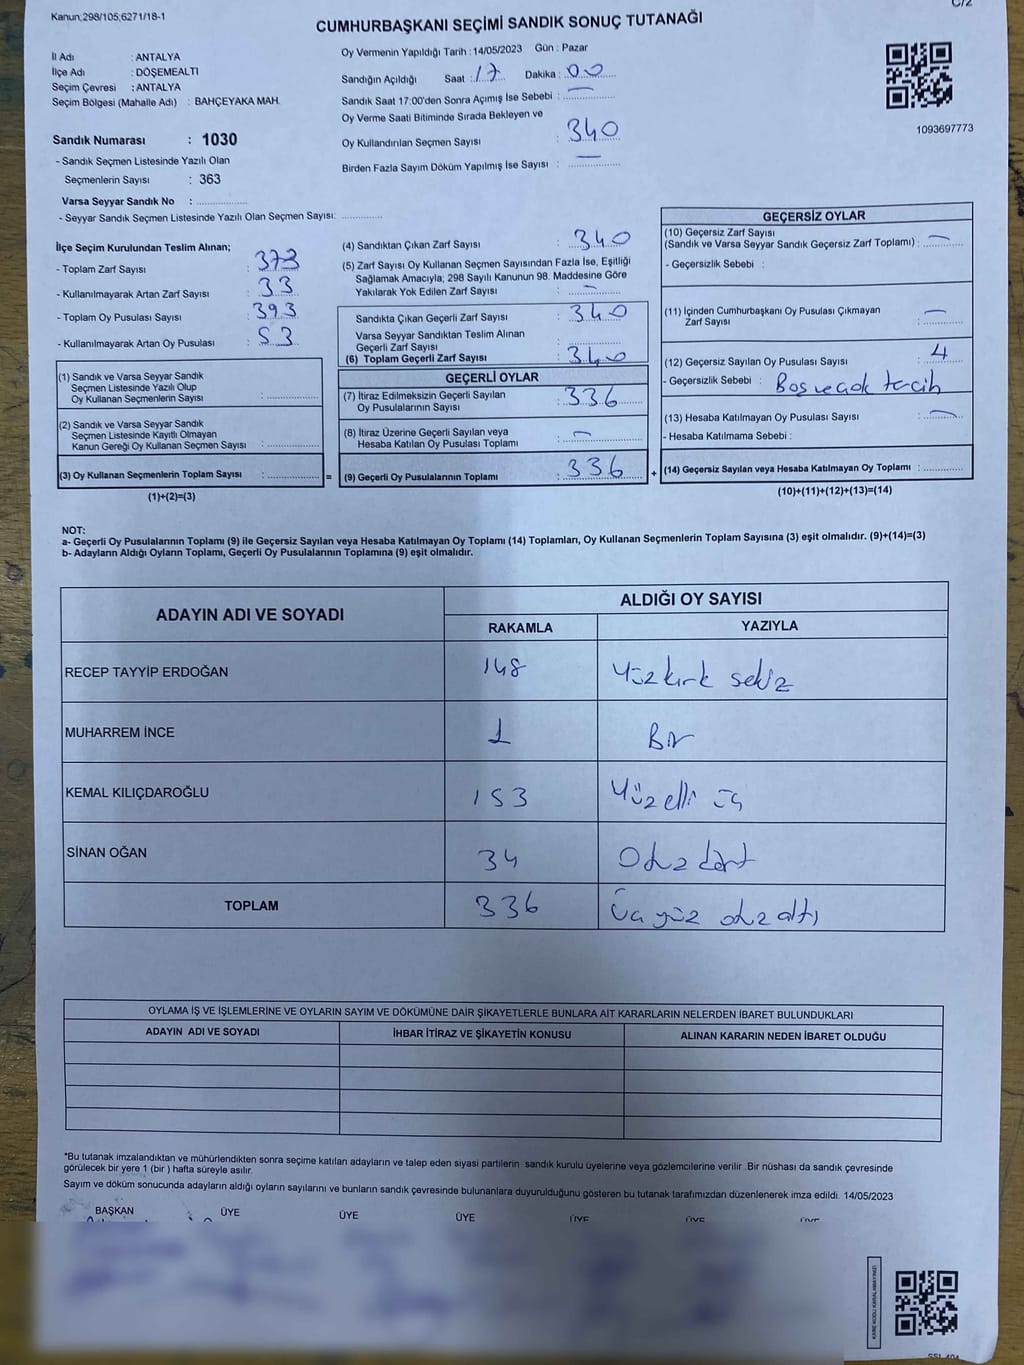 Kanun;298/105;6271/18-1
C/2
CUMHURBAŞKANI SEÇİMİ SANDIK SONUÇ TUTANAĞI
İl Adı : ANTALYA
İlçe Adı : DÖŞEMEALTI
Seçim Çevresi : ANTALYA
Seçim Bölgesi (Mahalle Adı) : BAHÇEYAKA MAH.
Sandık Numarası : 1030
- Sandık Seçmen Listesinde Yazılı Olan
Seçmenlerin Sayısı : 363
Varsa Seyyar Sandık No : ............
- Seyyar Sandık Seçmen Listesinde Yazılı Olan Seçmen Sayısı: ............
Oy Vermenin Yapıldığı Tarih : 14/05/2023 Gün : Pazar
Sandığın Açıldığı Saat : 17 Dakika : 00
Sandık Saat 17:00'den Sonra Açımış İse Sebebi : —
Oy Verme Saati Bitiminde Sırada Bekleyen ve
Oy Kullandırılan Seçmen Sayısı : 340
Birden Fazla Sayım Döküm Yapılmış İse Sayısı : —
1093697773
İlçe Seçim Kurulundan Teslim Alınan;
- Toplam Zarf Sayısı : 373
- Kullanılmayarak Artan Zarf Sayısı : 33
- Toplam Oy Pusulası Sayısı : 393
- Kullanılmayarak Artan Oy Pusulası : 53
(1) Sandık ve Varsa Seyyar Sandık
Seçmen Listesinde Yazılı Olup
Oy Kullanan Seçmenlerin Sayısı : ............
(2) Sandık ve Varsa Seyyar Sandık
Seçmen Listesinde Kayıtlı Olmayan
Kanun Gereği Oy Kullanan Seçmen Sayısı : ............
(3) Oy Kullanan Seçmenlerin Toplam Sayısı : ............ =
(1)+(2)=(3)
(4) Sandıktan Çıkan Zarf Sayısı : 340
(5) Zarf Sayısı Oy Kullanan Seçmen Sayısından Fazla İse, Eşitliği
Sağlamak Amacıyla; 298 Sayılı Kanunun 98. Maddesine Göre
Yakılarak Yok Edilen Zarf Sayısı : —
Sandıkta Çıkan Geçerli Zarf Sayısı : 340
Varsa Seyyar Sandıktan Teslim Alınan
Geçerli Zarf Sayısı : ............
(6) Toplam Geçerli Zarf Sayısı : 340
GEÇERLİ OYLAR
(7) İtiraz Edilmeksizin Geçerli Sayılan
Oy Pusulalarının Sayısı : 336
(8) İtiraz Üzerine Geçerli Sayılan veya
Hesaba Katılan Oy Pusulası Toplamı : —
(9) Geçerli Oy Pusulalarının Toplamı : 336 +
GEÇERSİZ OYLAR
(10) Geçersiz Zarf Sayısı
(Sandık ve Varsa Seyyar Sandık Geçersiz Zarf Toplamı) : —
- Geçersizlik Sebebi :
(11) İçinden Cumhurbaşkanı Oy Pusulası Çıkmayan
Zarf Sayısı : —
(12) Geçersiz Sayılan Oy Pusulası Sayısı : 4
- Geçersizlik Sebebi : Boş veçok tercih
(13) Hesaba Katılmayan Oy Pusulası Sayısı : —
- Hesaba Katılmama Sebebi :
(14) Geçersiz Sayılan veya Hesaba Katılmayan Oy Toplamı : ............
(10)+(11)+(12)+(13)=(14)
NOT:
a- Geçerli Oy Pusulalarının Toplamı (9) ile Geçersiz Sayılan veya Hesaba Katılmayan Oy Toplamı (14) Toplamları, Oy Kullanan Seçmenlerin Toplam Sayısına (3) eşit olmalıdır. (9)+(14)=(3)
b- Adayların Aldığı Oyların Toplamı, Geçerli Oy Pusulalarının Toplamına (9) eşit olmalıdır.
ADAYIN ADI VE SOYADI
ALDIĞI OY SAYISI
RAKAMLA YAZIYLA
RECEP TAYYİP ERDOĞAN 148 Yüzkırk sekiz
MUHARREM İNCE 1 Bir
KEMAL KILIÇDAROĞLU 153 Yüzelli üç
SİNAN OĞAN 34 Otuzdört
TOPLAM 336 Üçyüz otuzaltı
OYLAMA İŞ VE İŞLEMLERİNE VE OYLARIN SAYIM VE DÖKÜMÜNE DAİR ŞİKAYETLERLE BUNLARA AİT KARARLARIN NELERDEN İBARET BULUNDUKLARI
ADAYIN ADI VE SOYADI İHBAR İTİRAZ VE ŞİKAYETİN KONUSU ALINAN KARARIN NEDEN İBARET OLDUĞU
*Bu tutanak imzalandıktan ve mühürlendikten sonra seçime katılan adayların ve talep eden siyasi partilerin sandık kurulu üyelerine veya gözlemcilerine verilir .Bir nüshası da sandık çevresinde
görülecek bir yere 1 (bir ) hafta süreyle asılır.
Sayım ve döküm sonucunda adayların aldığı oyların sayılarını ve bunların sandık çevresinde bulunanlara duyurulduğunu gösteren bu tutanak tarafımızdan düzenlenerek imza edildi. 14/05/2023
BAŞKAN ÜYE ÜYE ÜYE ÜYE ÜYE ÜYE
KARE KODU KARALAMAYINIZ!